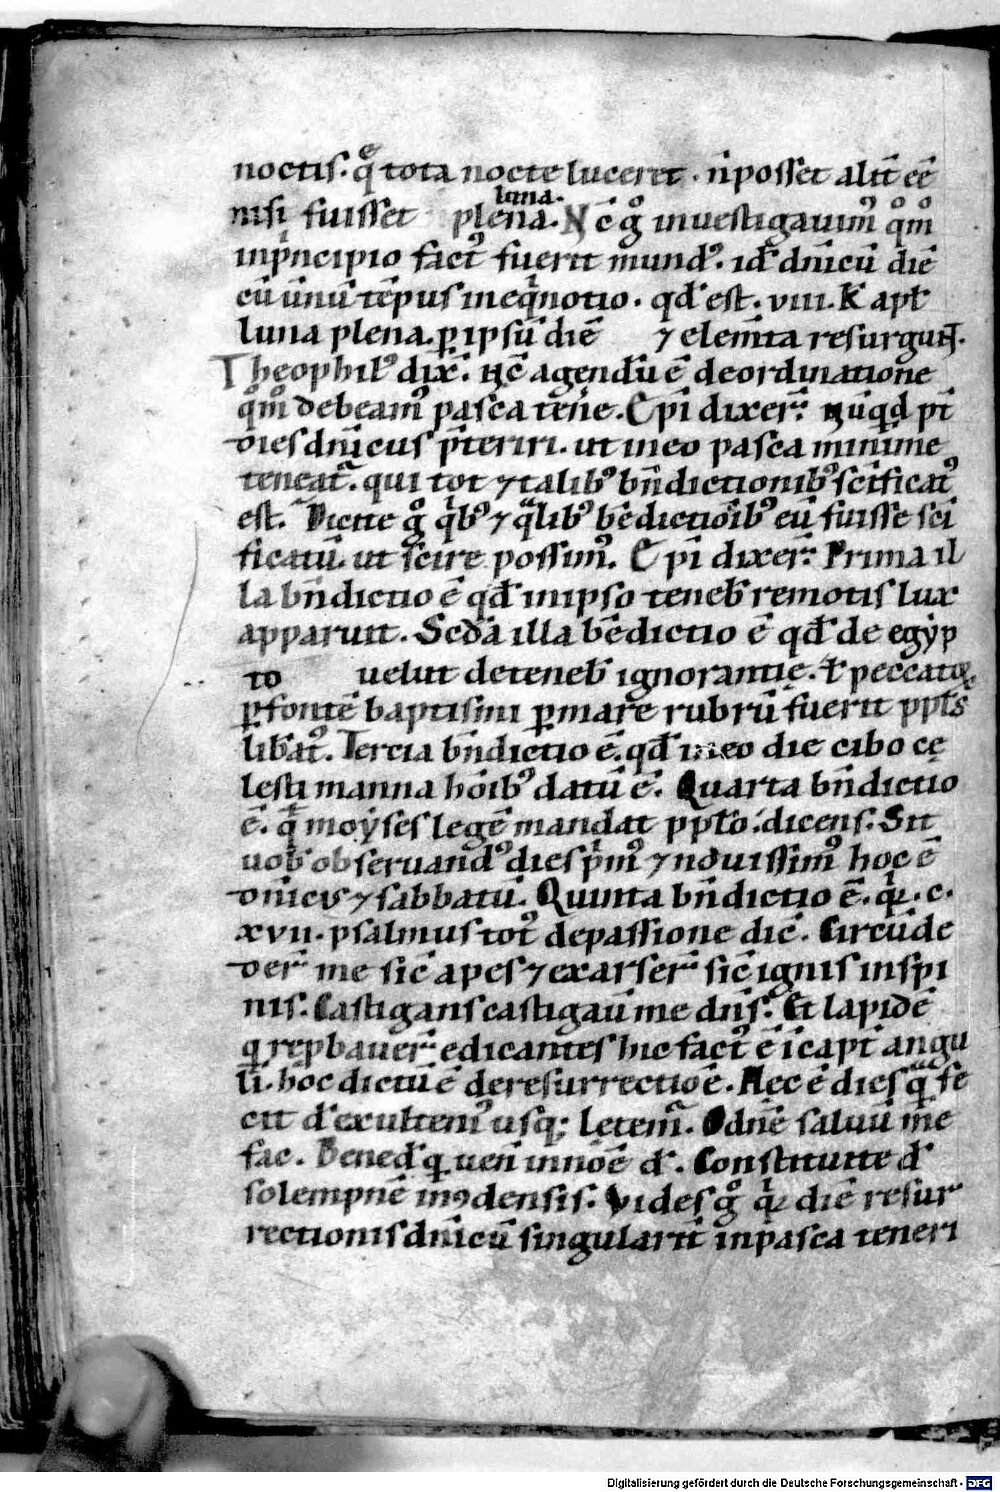 noctis. qͤ tota nocte luceret. n̄ posset alit̄ eē
luna.
nisi fuisset plena. Nc̄ gͦ inuestigauimꝰ qͦmͦ
inp̱ncipio factꝰ fuerit mundꝰ. id̄ dn̄icū diē
cū ūnū tēpus ineqͥnotio. qd̄ est. viii. k̄ apl̄
luna plena. ꝑ ipsū diē ⁊ elem̄ta resurgun̄t.
Theophilꝰ dix̄. Nc̄ agendū ē deordinatione
qͦmͦ debeamꝰ pasca tene. Epi dixer̄. Nūqd̄ pt̄
dies dn̄icus p̄teriri. ut ineo pasca minime
teneat᷑. qui tot ⁊ talibꝰ bn̄dictionibꝰ sc̄ificatꝰ
est. Dicite gͦ qͥbꝰ ⁊ qͣlibꝰ bēdictiōibꝰ eū fuisse sci
ficatū. ut scire possimꝰ. Epi dixer̄. Prima il
la bn̄dictio ē qd̄ inipso teneb̄ remotis lux
apparuit. Scd̄a illa bēdictio ē qd̄ de egyp
to uelut deteneb̄ ignorantię. ł peccatoꝝ
ꝑ fontē baptismi ꝑ mare rubrū fuerit ppl̄s
lib̄atꝰ. Tercia bn̄dictio ē. qd̄ ineo die cibo cę
lesti manna hōibꝰ datū ē. Quarta bn̄dictio
ē. qͣ moyses legē mandat pplo. dicens. Sit
uob̄ obseruandꝰ dies pͥmꝰ ⁊ nouissimꝰ hoc ē
dn̄icus ⁊ sabbatū. Quinta bn̄dictio ē. qͥ. c.
xvii. psalmus totꝰ depassione diē. Circūde
der̄ me sic̄ apes ⁊ exarser̄ sic̄ ignis inspi
nis. Castigans castigauī me dn̄s. Et lapidē
q rep̱bauer̄ edicantes hic factꝰ ē ī capt̄ angu
li. hoc dictū ē deresurrectiōe. Hec ē dies qͣ fe
cit d̄ exultemꝰ usq; letem᷑. O dn̄e saluū me
fac. Bened̄ q uen̄ innōe d̄. Constituite d̄
solempnē inꝯdensis. Vides gͦ qͥ diē resur
rectionis dn̄icū singularit̄ inpasca teneri
Digitalisierung gefördert durch die Deutsche Forschungsgemeinschaft - DFG